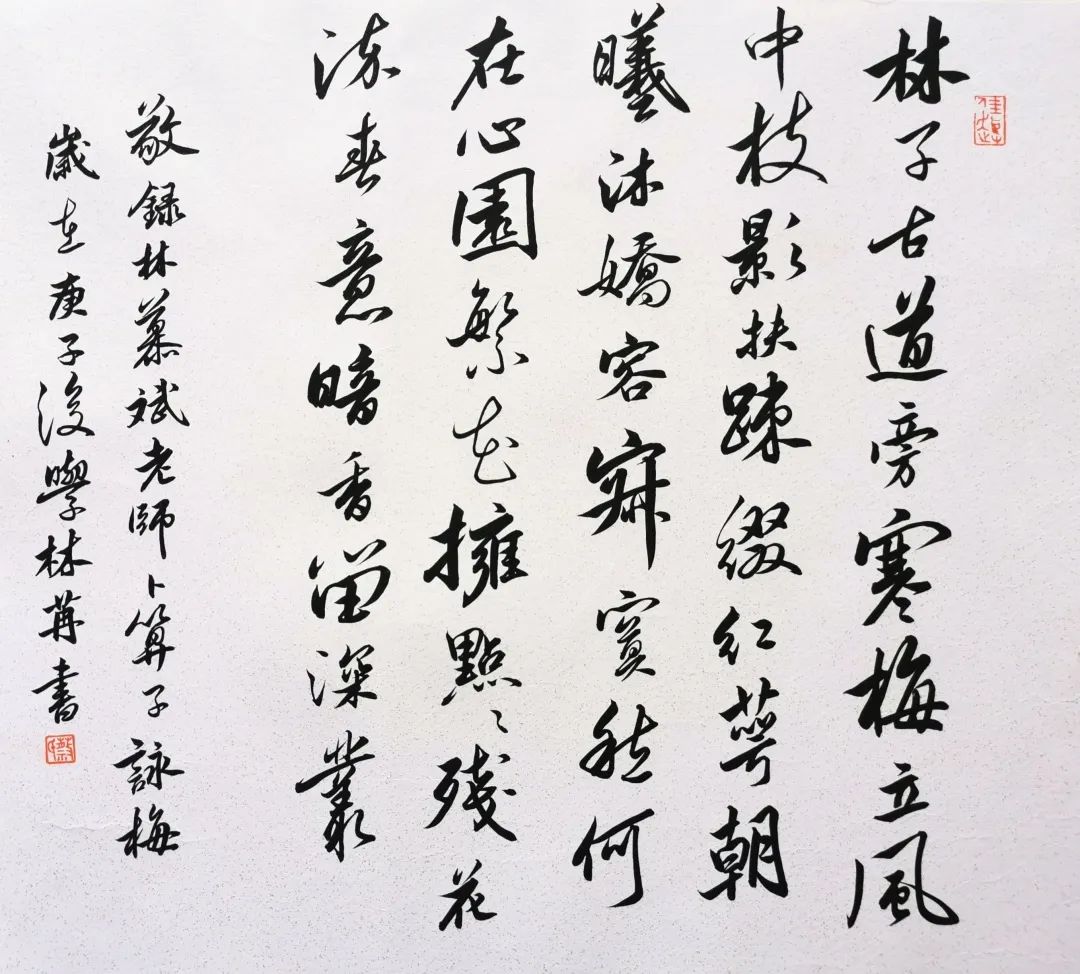 林子古道旁寒梅立風
中枝影扶踈缀红萼朝
曦沐嬌容寂寞愁何
在心園繁花擁點〻殘花
添春意暗香留深叢
敬録林慕斌老師卜算子 詠梅
歲在庚子後學林苒書